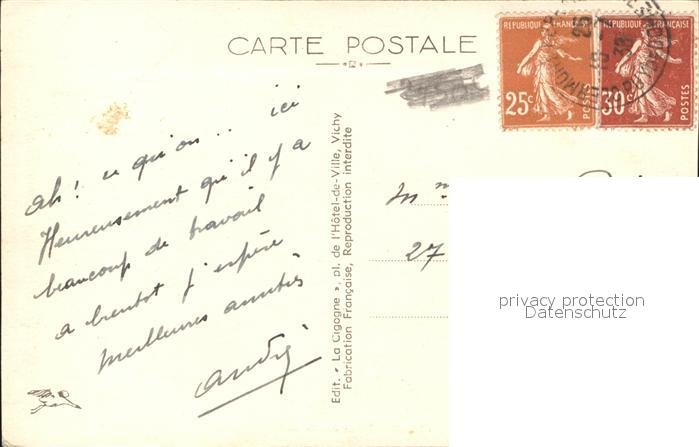 CARTE POSTALE
REPUBLIQUE FRANÇAISE
25c
POSTES
REPUBLIQUE FRANÇAISE
30c
POSTES
ah! ce qu'on .. ici
Heureusement qu'il y a
beaucoup de travail
a bientot j'espère
meilleures amitiés
André
Edit. « La Cigogne », pl. de l'Hôtel-de-Ville, Vichy
Fabrication Française, Reproduction interdite
27
privacy protection
Datenschutz